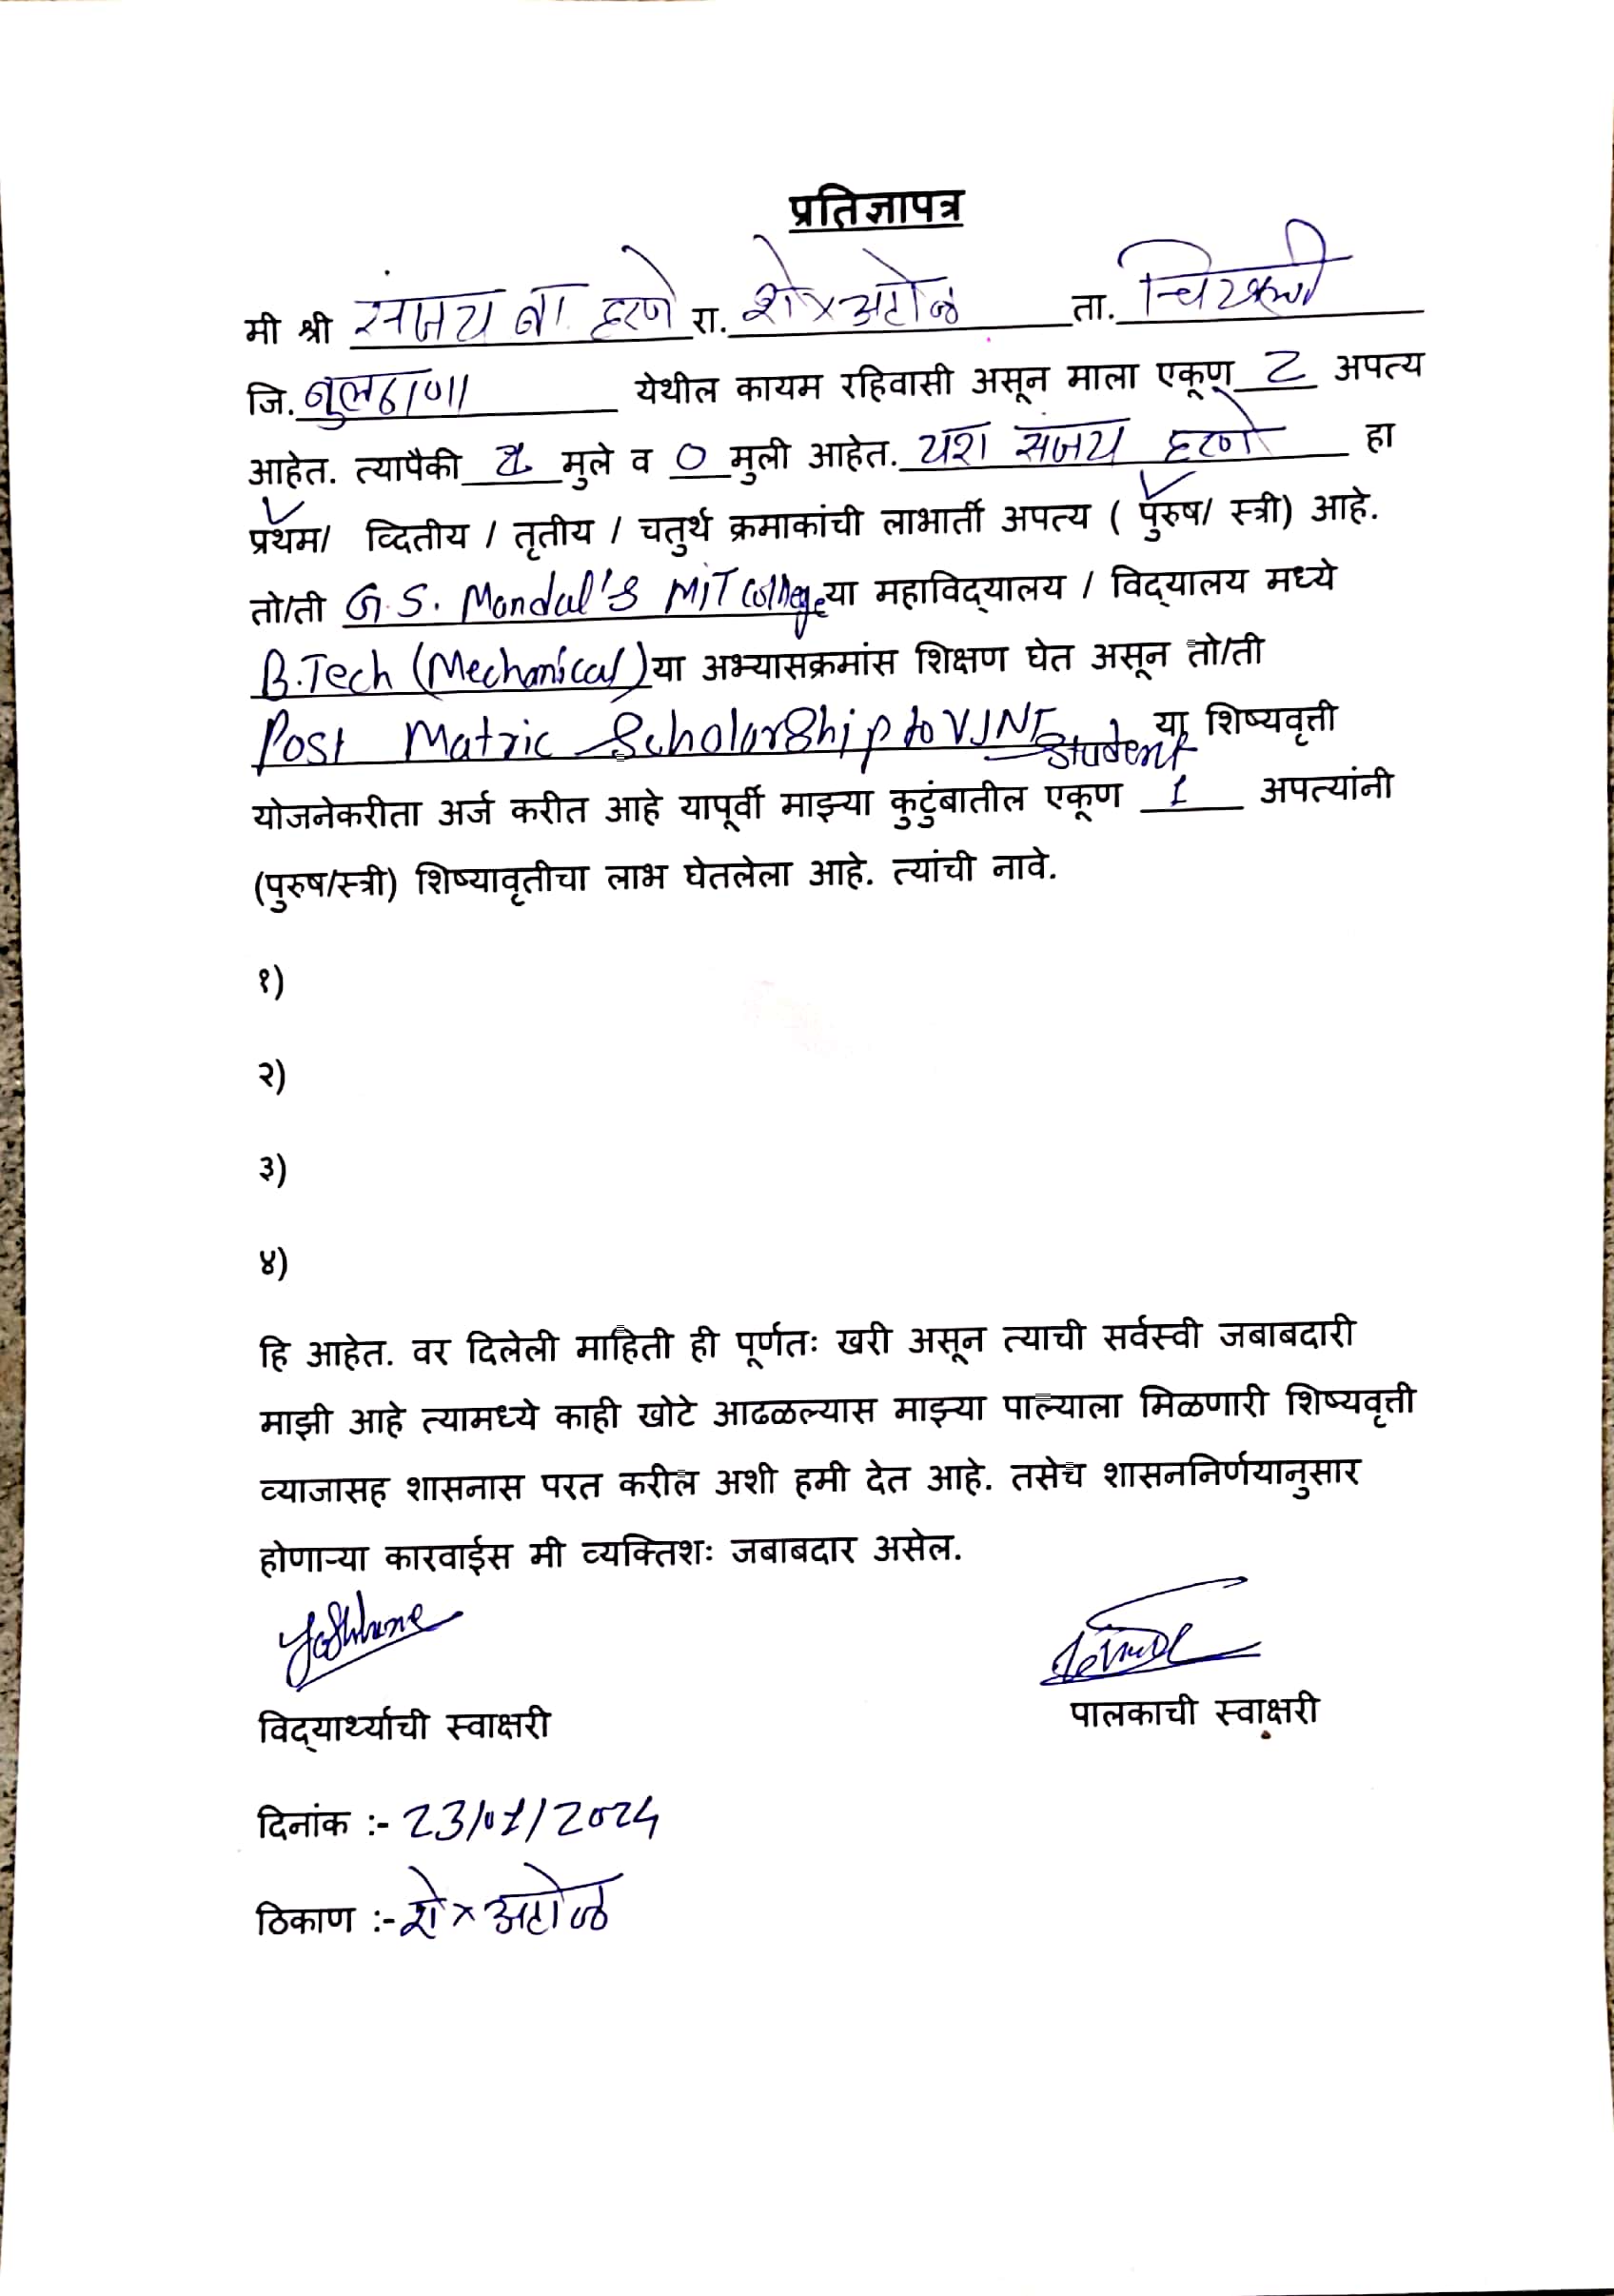 प्रतिज्ञापत्र
मी श्री संजय ना. हरणे रा. शे× अटोळ ता. चिखली
जि. बुलढाणा येथील कायम रहिवासी असून माला एकूण 2 अपत्य
आहेत. त्यापैकी मुले व 0 मुली आहेत. यश संजय हरणे हा
प्रथम/ व्दितीय / तृतीय / चतुर्थ क्रमाकांची लाभार्ती अपत्य ( पुरुष/ स्त्री) आहे.
तो/ती G.S. Mandal's MIT College या महाविद्यालय / विद्यालय मध्ये
B.Tech (Mechanical) या अभ्यासक्रमांस शिक्षण घेत असून तो/ती
Post Matric Scholarship to VJNT Student या शिष्यवृत्ती
योजनेकरीता अर्ज करीत आहे यापूर्वी माझ्या कुटुंबातील एकूण 1 अपत्यांनी
(पुरुष/स्त्री) शिष्यावृतीचा लाभ घेतलेला आहे. त्यांची नावे.
१)
२)
३)
४)
हि आहेत. वर दिलेली माहिती ही पूर्णतः खरी असून त्याची सर्वस्वी जबाबदारी
माझी आहे त्यामध्ये काही खोटे आढळल्यास माझ्या पाल्याला मिळणारी शिष्यवृत्ती
व्याजासह शासनास परत करील अशी हमी देत आहे. तसेच शासननिर्णयानुसार
होणाऱ्या कारवाईस मी व्यक्तिशः जबाबदार असेल.
विद्यार्थ्याची स्वाक्षरी पालकाची स्वाक्षरी
दिनांक :- 23/01/2024
ठिकाण :- शे× अटोळ